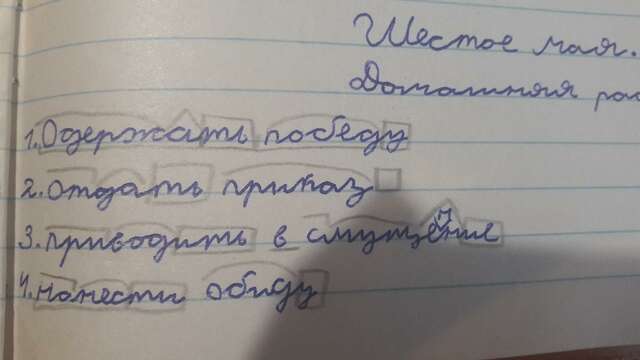 Шестое мая.
Домашняя
1. Одержать победу
2. отдать приказ
3. приводить в смущение
4. нанести обиду